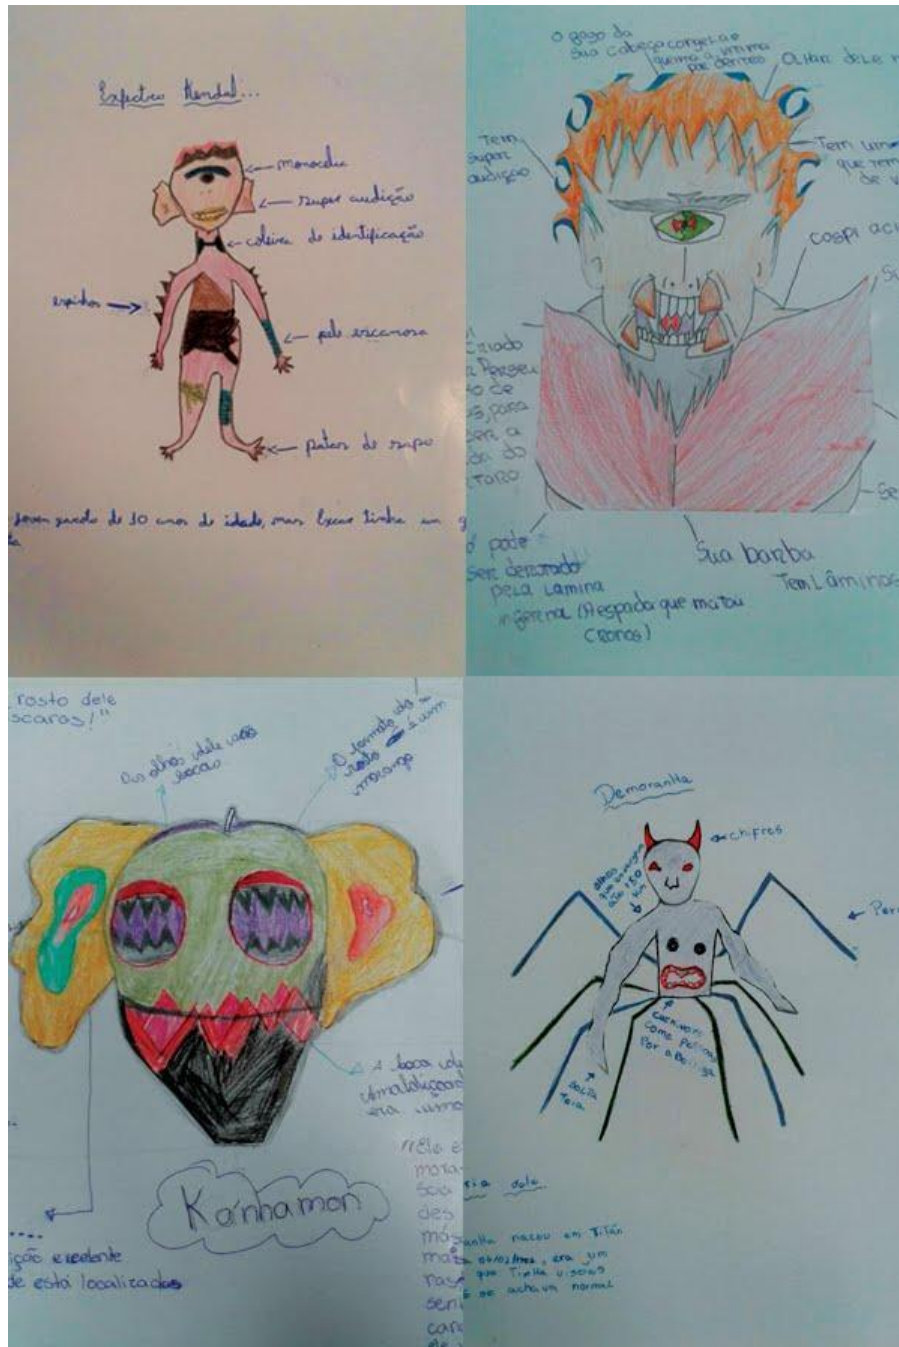 Expectro Mendal...
monocelia
super audição
coleira de identificação
espinhos
pele escamosa
patas de sapo
joven garoto de 10 anos de idade, mas tinha um
o fogo da
sua cabeça congela e
queima a vitima
por dentro
Olhar dele
Tem
super
audição
Tem um
que tem
de
cospi aci
criado
Perseu
de
para
ser a
do
TARO
pode
ser derrotado
pela Lamina
inferna (A espada que matou
Cronos)
Sua barba
Tem Lâminas
rosto dele
scaras!"
Os olhos dele são
bocas
O formato do
rosto é um
morango
A boca
amaldiçoad
era uma
Kánhamon
"Ele e
mora
Sua
des
más
mais
nas
sen
can
ição excelente
de está localizados
Demoranha
chifres
olhos
que enxergam
até 150
km
Per
Carnivoro
come pessoas
por a Barriga
Solta
Teia
ria dele
anha nasceu em Titãn
era um
que Tinha visoes
se achava normal